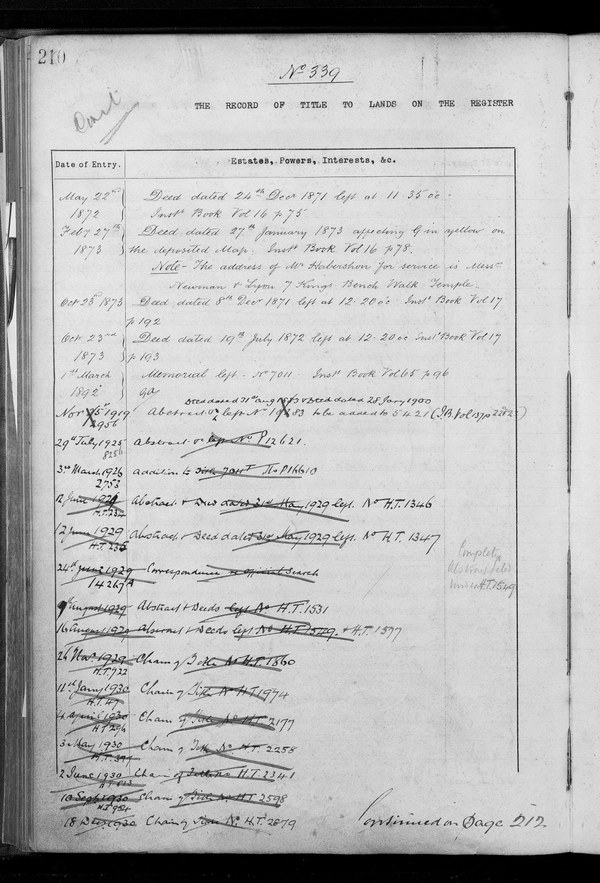 210
No 339
Cont
THE RECORD OF TITLE TO LANDS ON THE REGISTER
Date of Entry. Estates, Powers, Interests, &c.
May 22nd Deed dated 24th Decr 1871 left at 11.35 oc.
1872 Inst. Book Vol 16 p 75
Feby 27th Deed dated 27th January 1873 affecting G in yellow on
1873 the deposited Map. Inst. Book Vol 16 p 78.
Note - The address of Mr Habershon for service is Messrs
Newman & Lyon 7 Kings Bench Walk Temple.
Oct 23d 1873 Deed dated 8th Decr 1871 left at 12.20 oc Inst. Book Vol 17
p 192
Oct 23rd Deed dated 19th July 1872 left at 12.20 oc Inst. Book Vol 17
1873 p 193
1st March Memorial left. No 7011. Inst. Book Vol 65 p 96
1892
Deed dated 31st Aug 1893 & Deed dated 28 Jany 1900
Novr 25th 1919 Abstract left No 19283 to be added to 5421 (I.B. Vol 137 p
2956
29th July 1925 Abstract left No P12621.
8256
3rd March 1926 Addition to No P16610
2753
12 June 1929 Abstract & Deed dated 31st May 1929 left. No H.T. 1346
H.T. 234
12 June 1929 Abstract & Deed dated 31st May 1929 left. No H.T. 1347
H.T. 235
24th June 1929 Correspondence official Search
14267A
Complete
Abstract filed
under H.T. 1549
9th August 1929 Abstract & Deeds left No H.T. 1531
16th August 1929 Abstract & Deeds left No H.T. 1549. & H.T. 1577
26 Novr 1929 Chain of Title No H.T. 1860
H.T. 722
11th Jany 1930 Chain of Title No H.T. 1974
H.T. 47
4 April 1930 Chain of Title No H.T. 2177
H.T. 296
3 May 1930 Chain of Title No. H.T. 2258
H.T. 394
2 June 1930 Chain of Title No H.T. 2341
H.T.
10 Sept 1930 Chain of Title No H.T. 2598
H.T.
18 Decr 1930 Chain of Title No. H.T. 2879
Continued on Page 212